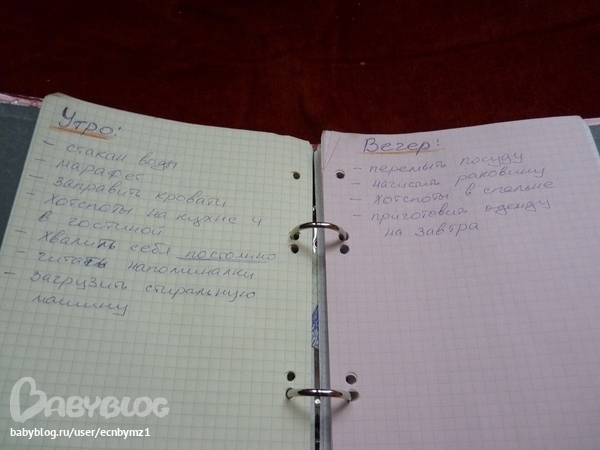 Утро:
- стакан воды
- марафет
- заправить кровати
- хотспоты на кухне и
в гостиной
- хвалить себя постоянно
- читать напоминалки
- загрузить стиральную
машину
Вечер:
- перемыть посуду
- начистить раковину
- хотспоты в спальне
- приготовить одежду
на завтра
BABYBLOG
babyblog.ru/user/ecnbymz1